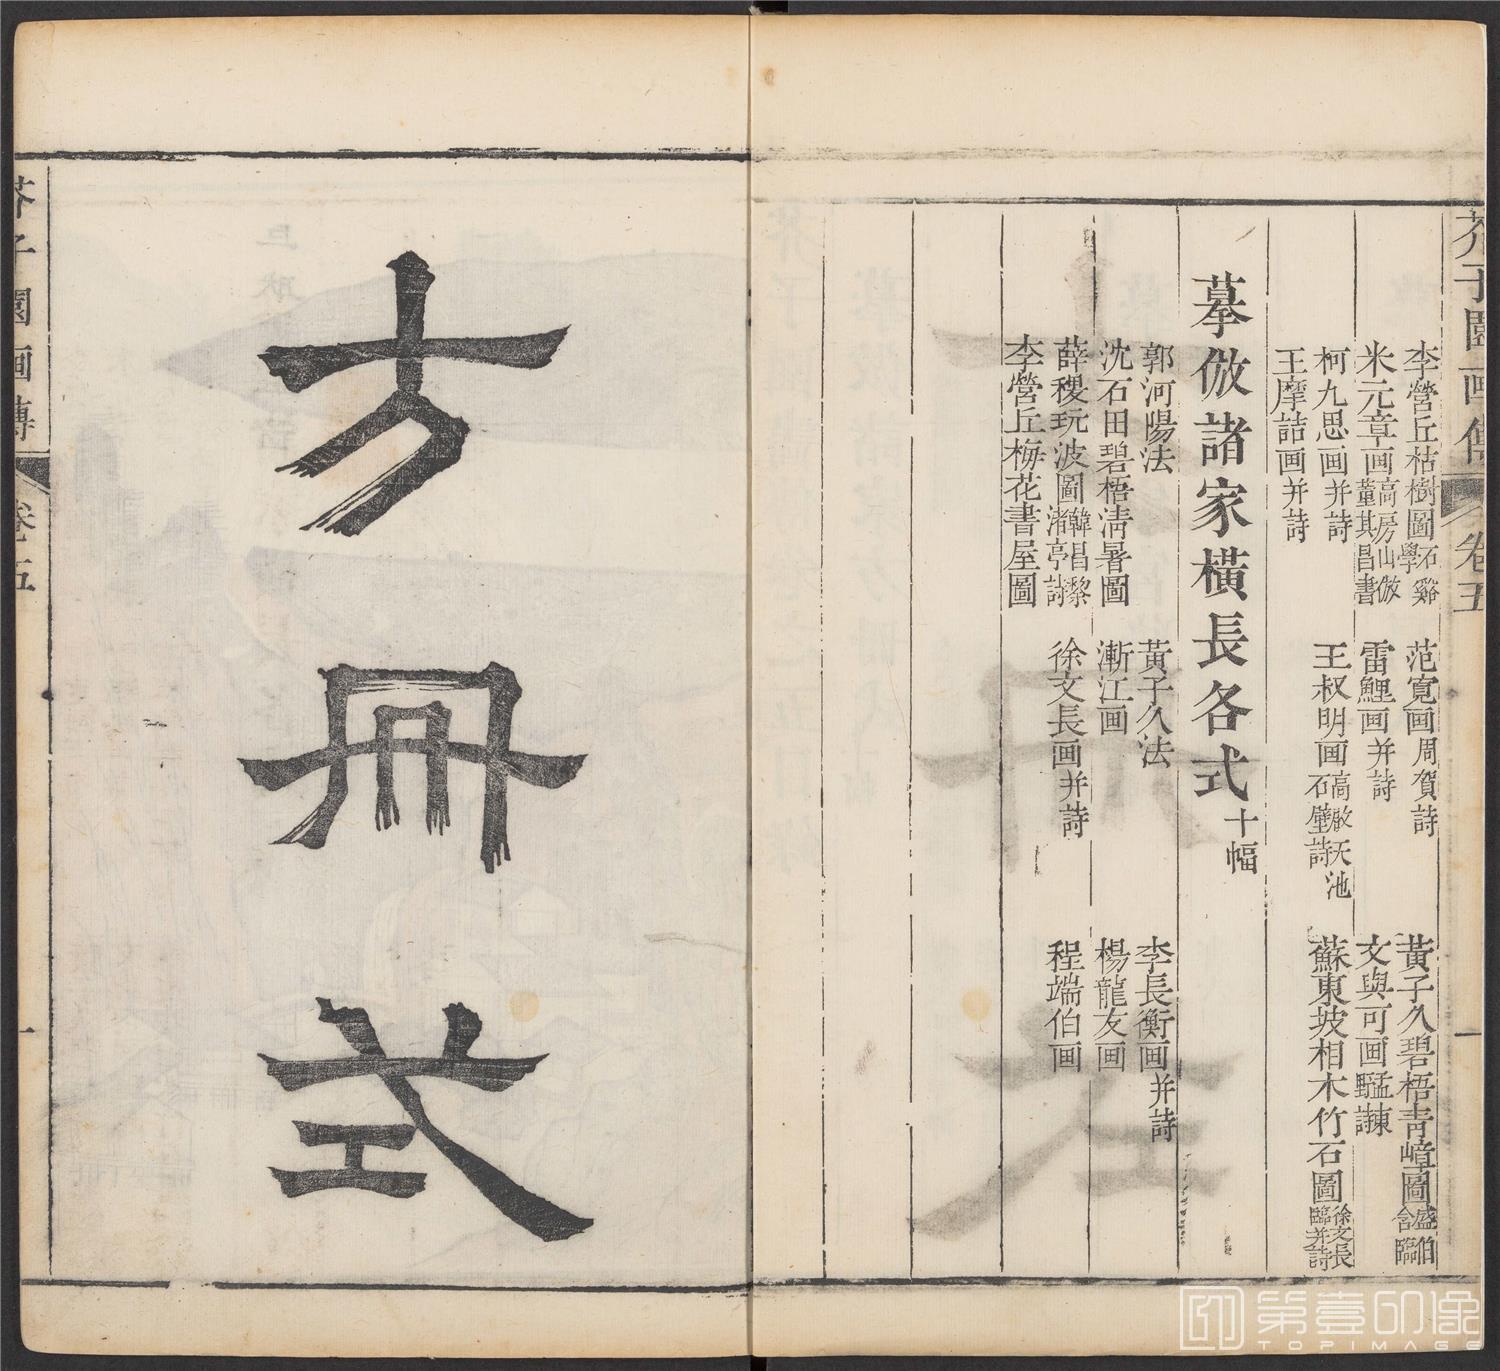 芥子園画傳 卷五 一
李營丘枯樹圖 石谿學 范寬画 周賀詩 黃子久碧梧青嶂圖 盛伯含臨
米元章画 高房山倣 董其昌書 雷鯉画并詩 文與可画
柯九思画并詩 王叔明画 高啟天池石壁詩 蘇東坡相木竹石圖 徐文長臨并詩
王摩詰画并詩
摹倣諸家橫長各式 十幅
郭河陽法 黃子久法 李長衡画并詩
沈石田碧梧清暑圖 漸江画 楊龍友画
薛稷玩波圖 韓昌黎渚亭詩 徐文長画并詩 程端伯画
李營丘梅花書屋圖
方冊式
芥子園画傳 卷五 一
第壹印像
TOPIMAGE